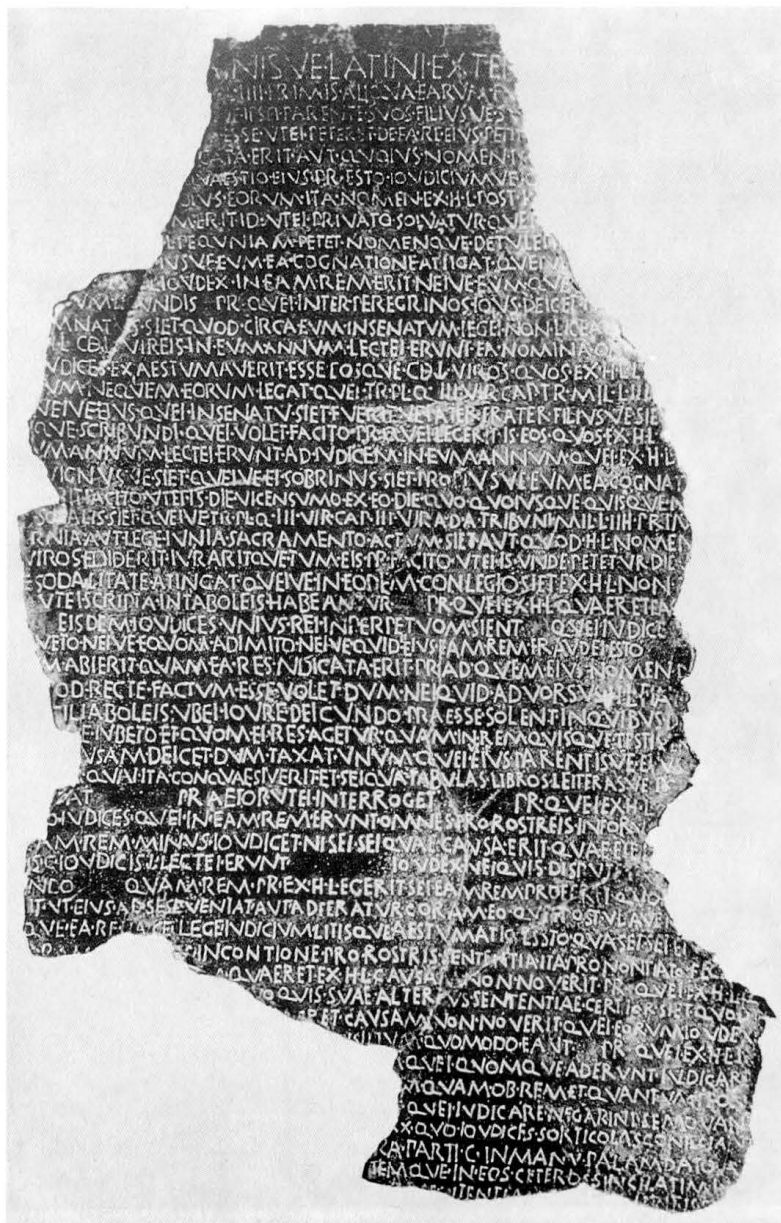 NISVE·LATINI·EX·TE
IIII·PRIMIS·ALIQVA·EARVM
PARENTE·SVOS·FILIVS·VE·S
ESSE·VTEI·PETERET·DE·EA·RE·EIVS·PETI
CATA·ERIT·AVT·QVOIVS·NOMEN
QVAESTIO·EIVS·PR·ESTO·IOVDICIVM
EORVM·ITA·NOMEN·EX·H·L·POST
MERIT·ID·VTEI·PRIVATO·SOLVATVR·QVE
PEQVNIAM·PETET·NOMENQVE·DETVLE
NSVE·EVM·EA·COGNATIONE·ATIGAT·QVE
IOVDEX·IN·EAM·REM·ERIT·NEIVE·EVM·QVE
VNDIS PR·QVEI·INTER·PEREGRINOS·IOVS·DEICET
MNATVS·SIET·QVOD·CIRCA·EVM·IN·SENATVM·LEGEI·NON·LICEA
CDL·VIREIS·IN·EVM·ANNVM·LECTEI·ERVNT·EA·NOMINA·O
VDICES·EX·AESTVMAVERIT·ESSE·EOSQVE·CDL·VIROS·QVOS·EX·H·L
VM·NEQVEM·EORVM·LEGAT·QVEI·TR·PL·Q·III·VIR·CAP·TR·MIL·L·IIII
VE·NEIVE·EIVS·QVEI·IN·SENATV·SIET·FVERITVE·PATER·FRATER·FILIVSVE·SIE
QVE·SCRIBVNDI·QVEI·VOLET·FACITO·PR·QVEI·LEGERIT·IS·EOS·QVOS·EX·H·L
VM·ANNVM·LECTEI·ERVNT·AD·IVDICEM·IN·EVM·ANNVM·QVEI·EX·H·L
VIGNVSVE·SIET·QVEIVE·EI·SOBRINVS·SIET·PROPIVSVE·EVM·EA·COGNAT
FACITO·VTEI·IS·DIE·VICENSVMO·EX·EO·DIE·QVO·QVOIVSQVE·QVISQVE
SODALIS·SIET·QVEIVE·TR·PL·Q·III·VIR·CAP·III·VIR·A·D·A·TRIBVNI·MIL·L·IIII·PRIM
RNIA·AVT·LEGE·IVNIA·SACRAMENTO·ACTVM·SIET·AVT·QVOD·H·L·NOMEN
VIROS·EDIDERIT·IVRARITQVE·TVM·EIS·PR·FACITO·VTEI·IS·VNDE·PETETVR·DIE
SODALITATE·ATINGAT·QVEIVE·IN·EODEM·CONLEGIO·SIET·EX·H·L·NON·E
VTEI·SCRIPTA·IN·TABOLEIS·HABEANTVR PR·QVEI·EX·H·L·QVAERET·EA
EISDEM·IOVDICES·VNIVS·REI·IN·PERPETVOM·SIENT QVEI·IVDICE
VETO·NEIVE·EQVOM·ADIMITO·NEIVE·QVID·EI·OB·EAM·REM·FRAVDEI·ESTO
M·ABIERIT·QVAM·EA·RES·IVDICATA·ERIT·PR·AD·QVEM·EIVS·NOMEN
OD·RECTE·FACTVM·ESSE·VOLET·DVM·NEIQVID·ADVORSV
TABOLEIS·VBEI·IOVRE·DEICVNDO·PRAESSE·SOLENT·IN·QVIBVS
IVBETO·ET·QVOM·EI·RES·AGETVR·QVAM·IN·REM·QVISQVE·TESTI
VSAM·DEICET·DVM·TAXAT·VNVM·QVEI·EIVS·PARENTISVE
QVAI·ITA·CONQVAESIVERIT·ET·SEI·QVA·TABVLAS·LIBROS·LEITTERASVE
DAT PRAETOR·VTEI·INTERROGET PR·QVEI·EX·H·L
IOVDICES·QVEI·IN·EAM·REM·ERVNT·OMNES·PRO·ROSTREIS·IN·FORV
AM·REM·MINVS·IOVDICET·NISEI·SEI·QVAE·CAVSA·ERIT·QVAE·E
IOVDICIS·LECTEI·ERVNT IOVDEX·NEI·QVIS·DISPVTE
NDO QVAM·REM·PR·EX·H·L·EGERIT·SEI·EAM·REM·PROFERET·QVO
IT·VT·EIVS·AD·SESE·VENIAT·AVT·ADFERATVR·CORAM·EO·QVEI·POSTVLAV
QVE·EA·RE·LEGE·IVDICIVM·LITISQVE·AESTVMATIO·ESSET
IN·CONTIONE·PRO·ROSTRIS·SENTENTIA·ITA·PRONONTIATO
QVAERET·EX·H·L·CAVSAM·NON·NOVERIT·PR·QVEI·EX·H·L
QVIS·SVAE·ALTERIVS·SENTENTIAE·CERTIOR·SIET·QVOD
ET·CAVSAM·NON·NOVERIT·QVEI·EORVM·IOVDE
QVOMODO·EANT PR·QVEI·EX·H·L
QVEI·QVOMQVE·ADERVNT·IVDICAR
QVAM·OB·REM·ET·QVANTVM
QVEI·IVDICARE·NEGARINT·SEMOVAN
X·QVO·IOVDICES·SORTICOLAS·CONICIA
PARTI·C·IN·MANV·PALAM·DATO
TEMQVE·IN·EOS·CETEROS·SINGILATIM